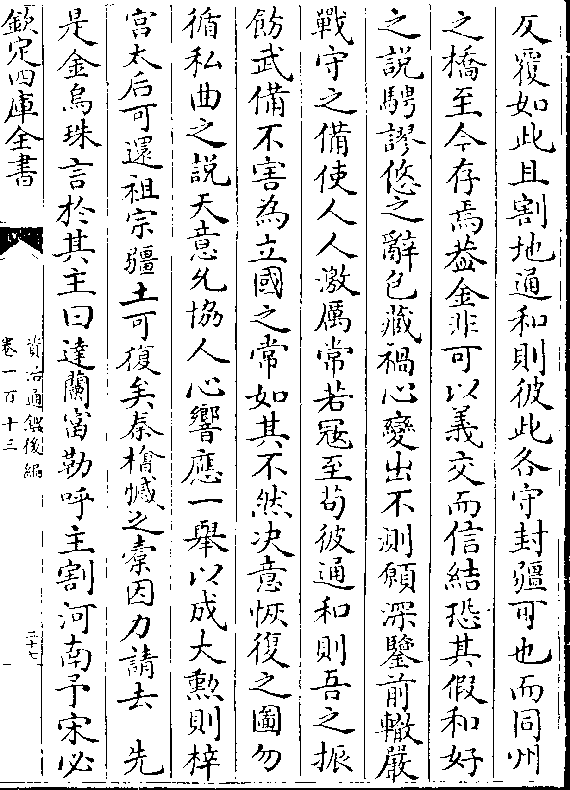 反覆如此且割地通和則彼此各守封疆可也而同州
之橋至今存焉葢金非可以義交而信結恐其假和好
之說騁謬悠之辭包藏禍心變出不測願深鑒前轍嚴
戰守之備使人人激厲常若冦至茍彼通和則吾之振
飭武備不害為立國之常如其不然决意恢復之圖勿
循私曲之說天意允協人心響應一舉以成大勲則梓
宫太后可還祖宗疆土可復矣秦檜憾之棄因力請去 先
是金烏珠言於其主曰達蘭富勒呼主割河南予宋必
欽定四庫全書
資治通鑑後編
卷一百十三
三十七